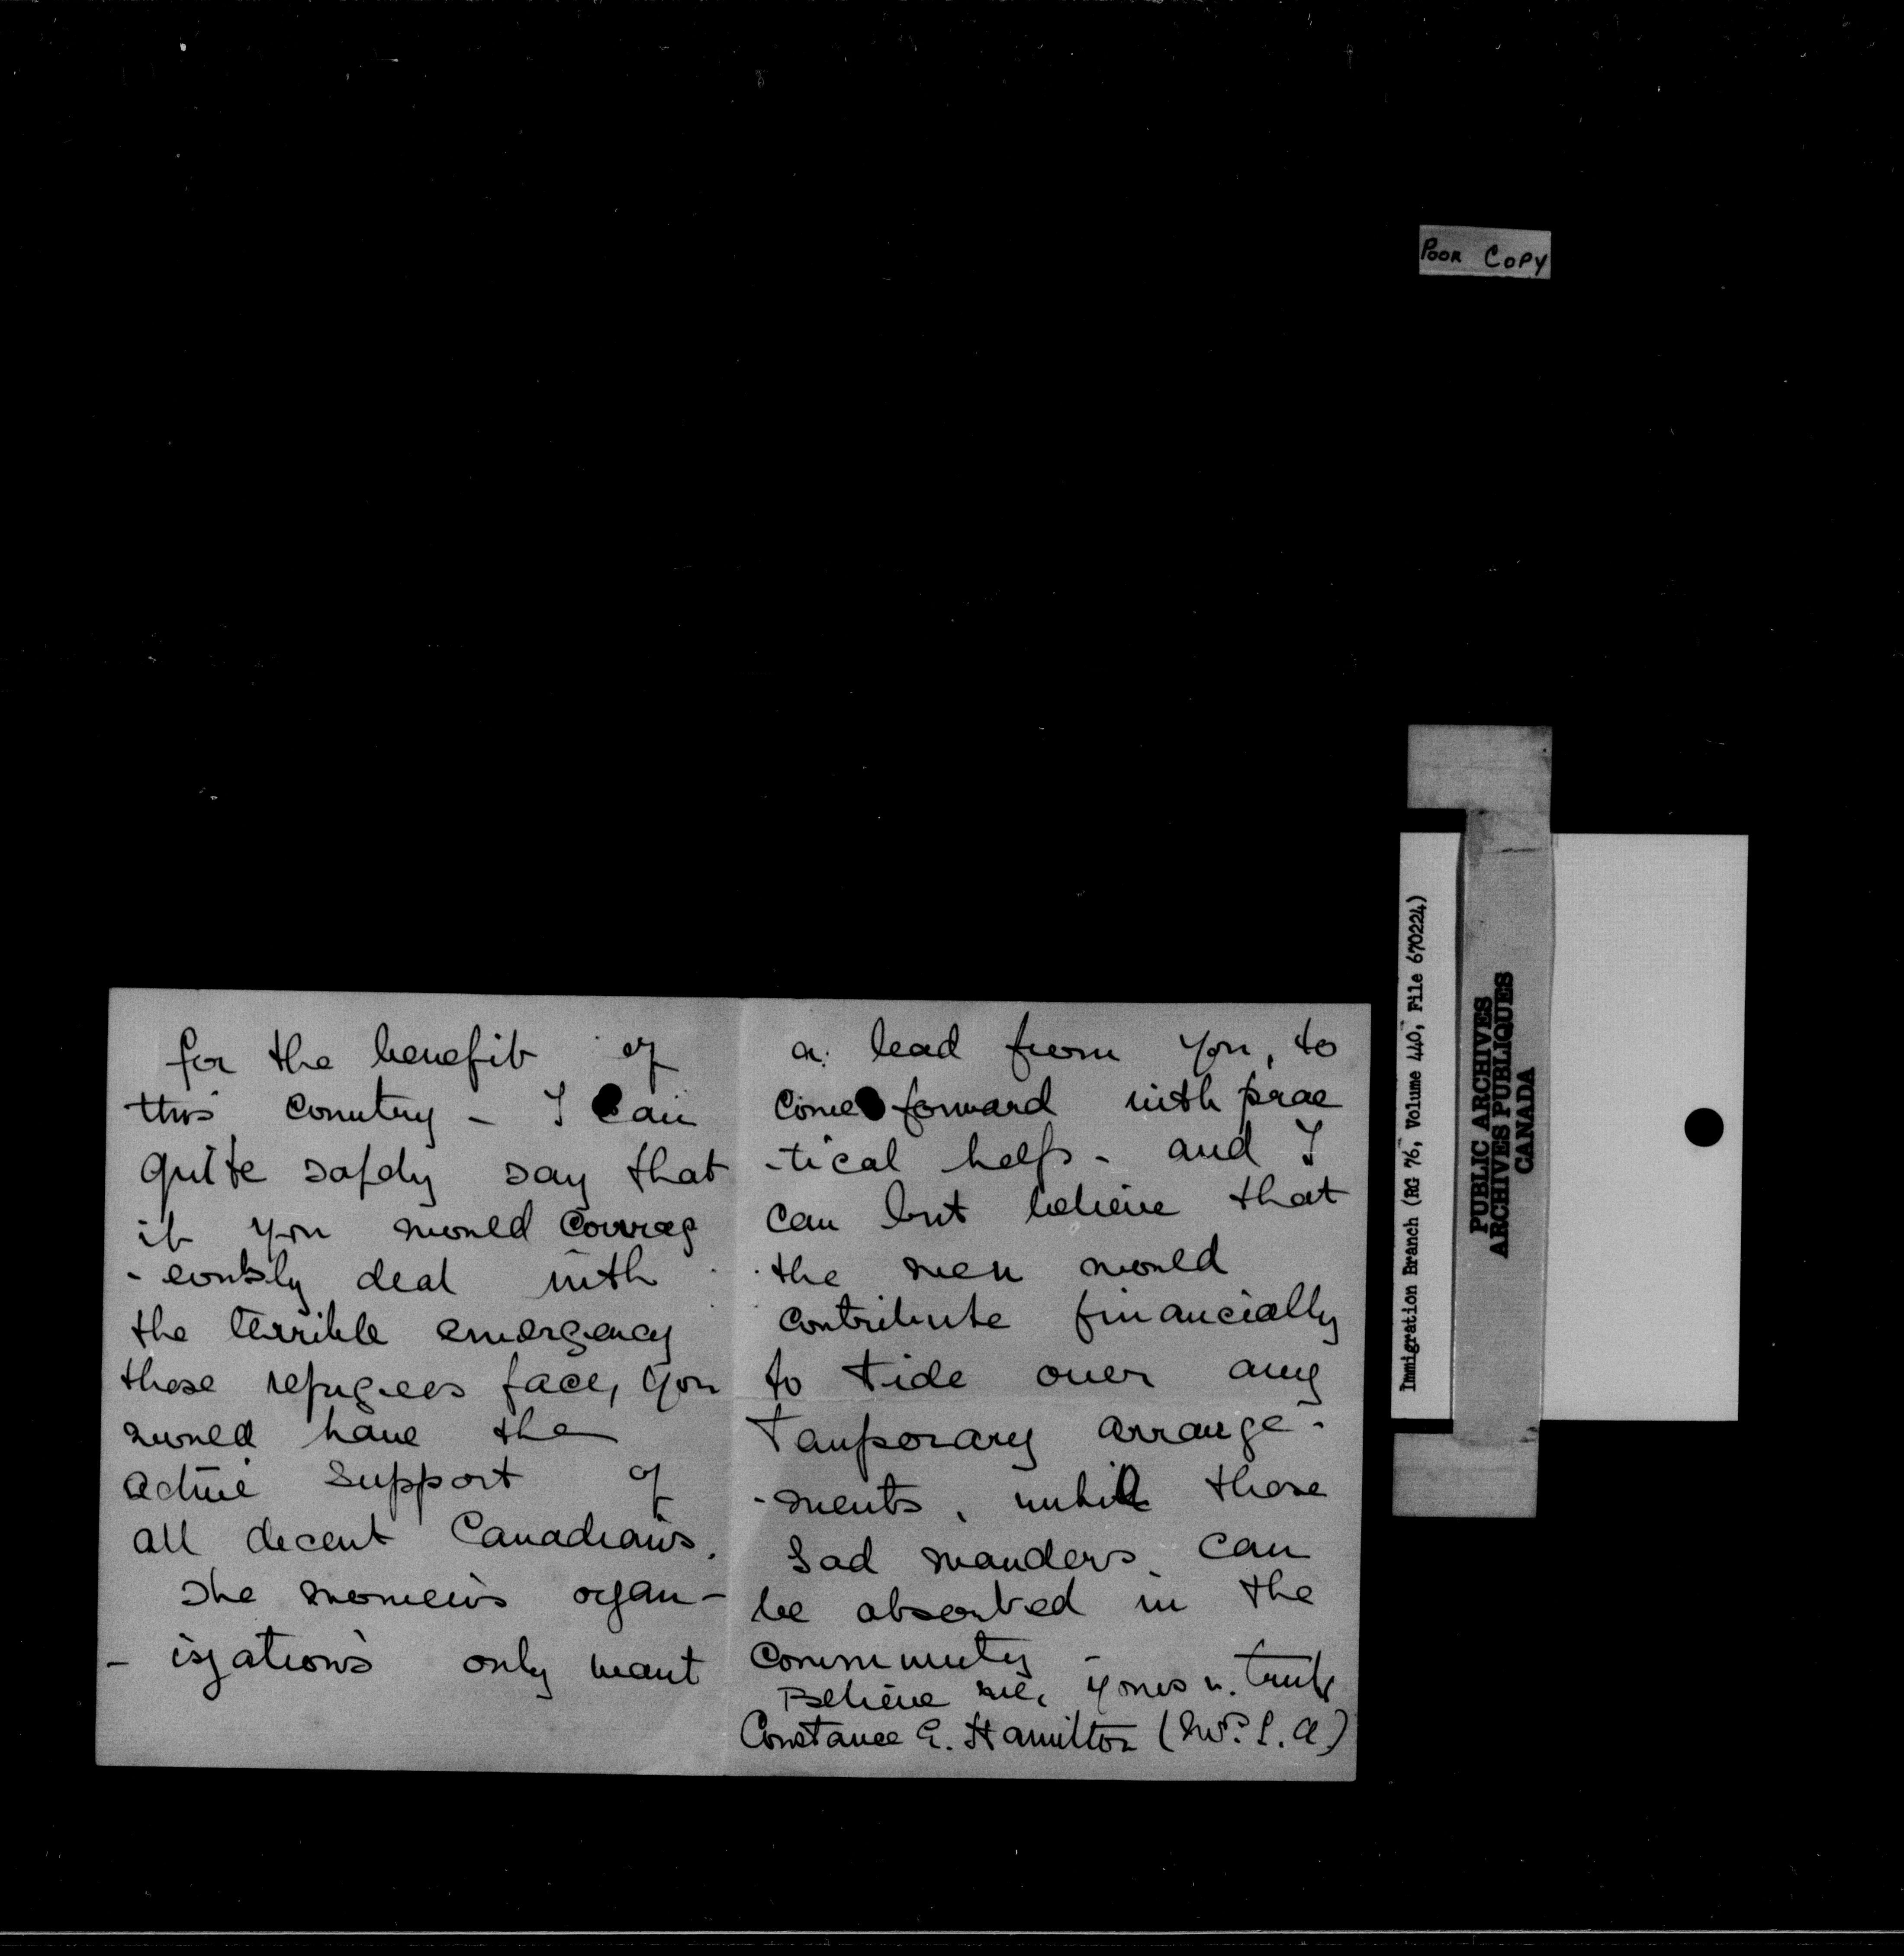 Poor Copy
for the benefit of
this country - I can
quite safely say that
if you would courag
- eously deal with
the terrible emergency
these refugees face, you
would have the
active support of
all decent Canadians.
The women's organ-
- izations only want
a lead from you, to
come forward with prac
-tical help - and I
can but believe that
the men would
contribute financially
to tide over any
temporary arrange-
-ments, until these
sad wanderers can
be absorbed in the
community -
Believe me, yours v. truly
Constance E. Hamilton
Immigration Branch (RG 76, Volume 440, File 670224)
PUBLIC ARCHIVES
ARCHIVES PUBLIQUES
CANADA